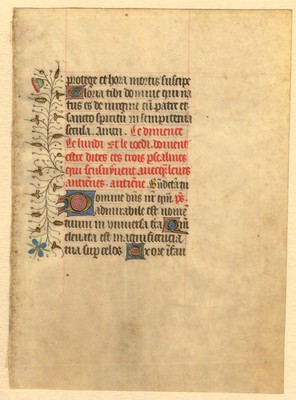 protege et hora mortis suscipe
Gloria tibi domine qui na
tus es de virgine cū patre et
sancto spiritu in sempiterna
secula. Amen. Le dimence
Le lundi Et le ioedi. doivent
estre dites ces trois psalmes
qui sensuyvent avecq leurs
antienes. antiene. Benedicta tu
Domine dn̄s nr̄ qm̄ ps
admirabile est nomē
tuum in universa t̄ra Qm̄
elevata est magnificencia
tua sup celos Ex ore īfan